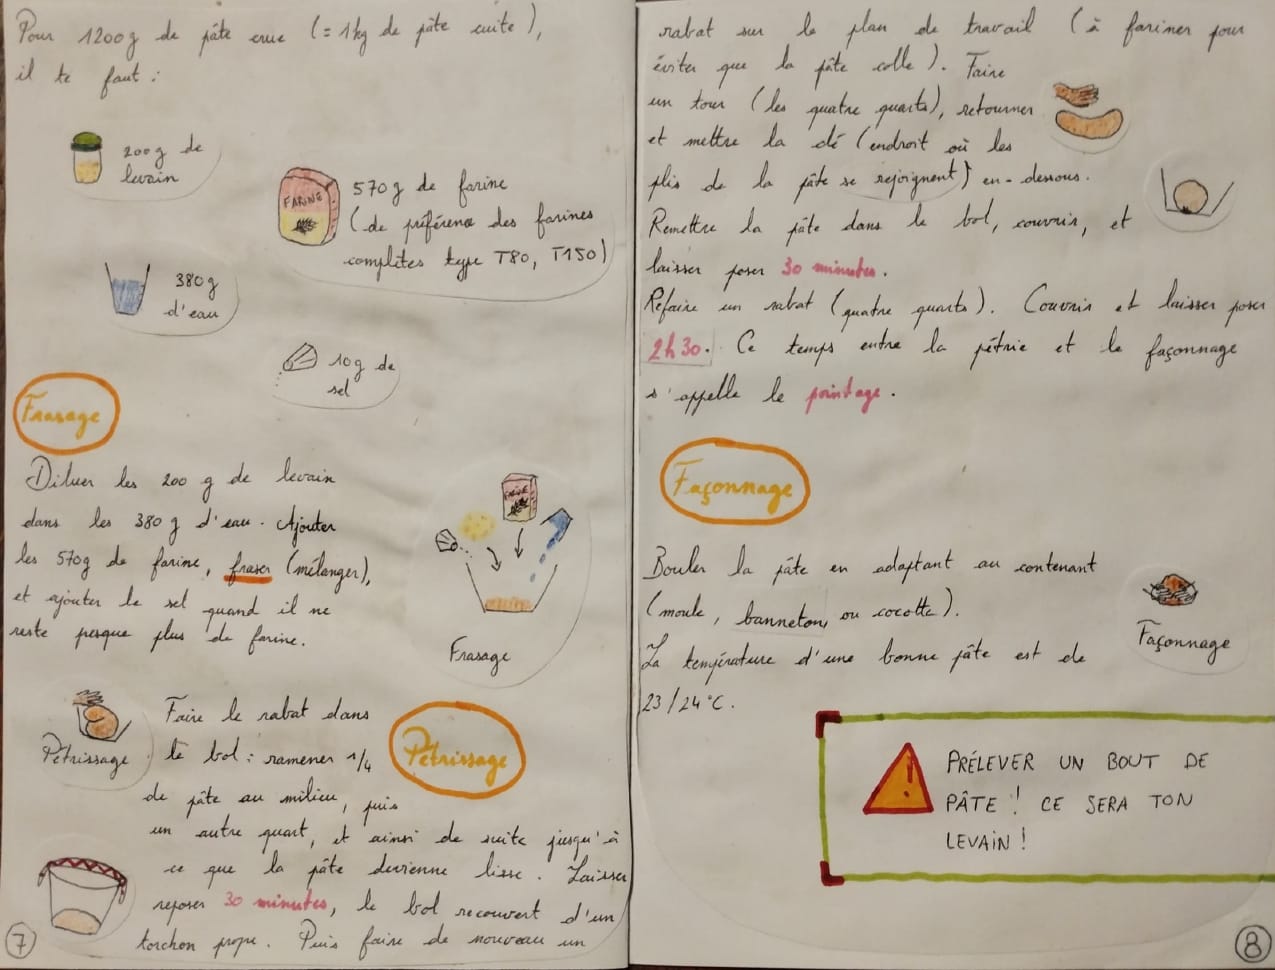 Pour 1200g de pâte crue (= 1kg de pâte cuite),
il te faut :
200g de
levain
FARINE
570g de farine
(de préférence des farines
complètes type T80, T150)
380g
d'eau
10g de
sel
Frasage
Diluer les 200 g de levain
dans les 380g d'eau. Ajouter
les 570g de farine, fraser (mélanger),
et ajouter le sel quand il ne
reste presque plus de farine.
FARINE
Frasage
Pétrissage
Faire le rabat dans
le bol : ramener 1/4
de pâte au milieu, puis
un autre quart, et ainsi de suite jusqu'à
ce que la pâte devienne lisse. Laisser
reposer 30 minutes, le bol recouvert d'un
torchon propre. Puis faire de nouveau un
Pétrissage
7
rabat sur le plan de travail (à fariner pour
éviter que la pâte colle). Faire
un tour (les quatre quarts), retourner
et mettre la clé (endroit où les
plis de la pâte se rejoignent) en-dessous.
Remettre la pâte dans le bol, couvrir, et
laisser poser 30 minutes.
Refaire un rabat (quatre quarts). Couvrir et laisser poser
2h30. Ce temps entre la pétrie et le façonnage
s'appelle le pointage.
Façonnage
Bouler la pâte en adaptant au contenant
(moule, banneton, ou cocotte).
La température d'une bonne pâte est de
23/24°C.
Façonnage
PRÉLEVER UN BOUT DE
PÂTE ! CE SERA TON
LEVAIN !
8